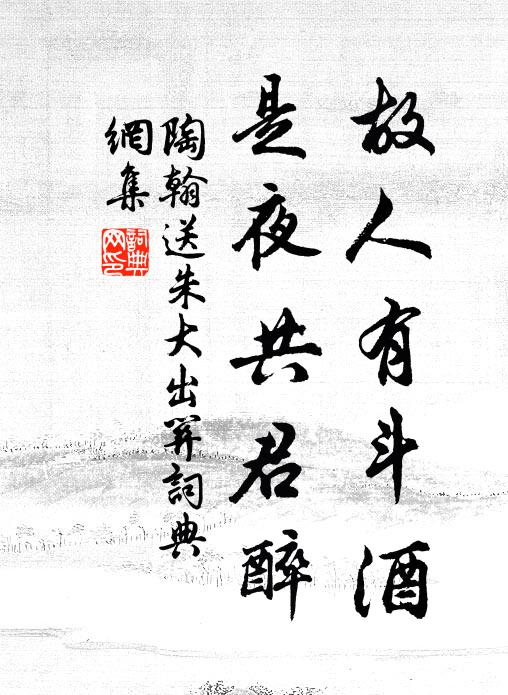 故人有斗酒
是夜共君醉
陶翰送朱大出關詞典
網集
詞典
网印